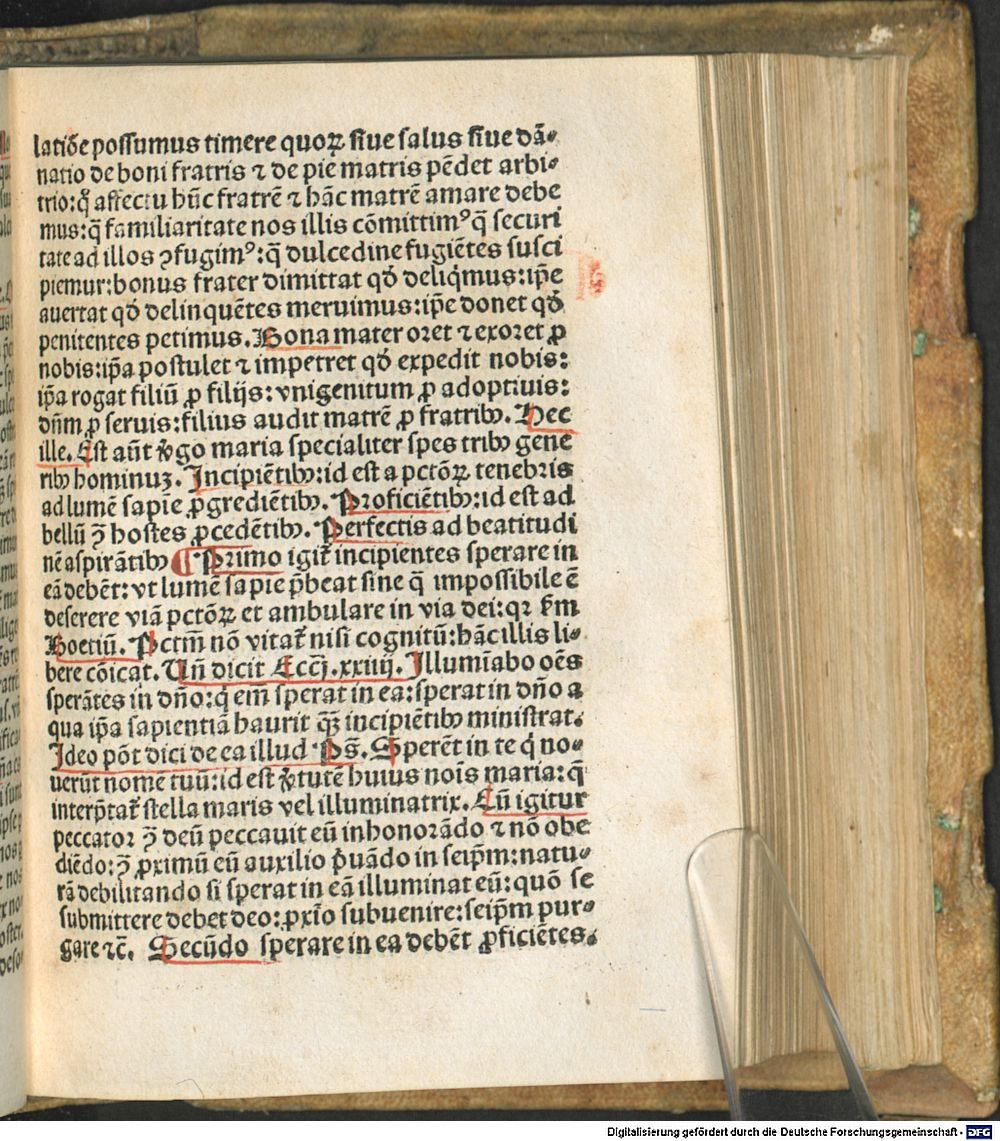 latiõe possumus timere quoꝝ siue salus siue dã⸗
natio de boni fratris ⁊ de pie matris pēdet arbi⸗
trio: q̊ affectu hūc fratrē ⁊ hãc matrē amare debe
mus: q̄ familiaritate nos illis cõmittimꝰ q̄ securi
tate ad illos ꝯfugimꝰ: q̄ dulcedine fugiētes susci
piemur: bonus frater dimittat qđ deliq̇mus: ip̄e
auertat qđ delinquētes meruimus: ip̄e donet qđ
penitentes petimus. Bona mater oret ⁊ exoret ꝓ
nobis: ip̄a postulet ⁊ impetret qđ expedit nobis:
ip̄a rogat filiū ꝓ filijs: vnigenitum ꝓ adoptiuis:
dn̄m ꝓ seruis: filius audit matrē ꝓ fratribꝰ. Hec
ille. Est aūt v̓go maria specialiter spes tribꝰ gene
ribꝰ hominuꝫ. Incipiētibꝰ: id est a pctõꝝ tenebris
ad lumē sapīe ꝓgrediētibꝰ. Proficiētibꝰ: id est ad
bellū ꝯ̄ hostes ꝓcedētibꝰ. Perfectis ad beatitudi
nē aspirãtibꝰ ¶ Primo igit̃ incipientes sperare in
eã debēt: vt lumē sapīe p̄beat sine q̄ impossibile ē
deserere viã pctõꝝ et ambulare in via dei: qꝛ s̄m
Boetiū. Pctm̄ nõ vitat̃ nisi cognitū: hãc illis li⸗
bere cõicat. Un̄ dicit Ecc̄j. xxiiij. Illumīabo oēs
sperãtes in dño: q̇ em̄ sperat in ea: sperat in dño a
qua ip̄a sapientiã haurit quã incipiētibꝰ ministrat.
Ideo põt dici de ea illud Ps̄. Sperēt in te q̇ no⸗
uerūt nomē tuū: id est v̓tutē huius nois maria: q̄
interp̄tat̃ stella maris vel illuminatrix. Cū igitur
peccator ꝯ̄ deū peccauit eū inhonorãdo ⁊ nõ obe
diēdo: ꝯ̄ ꝓximū eū auxilio p̓uãdo in seip̄m: natu⸗
rã debilitando si sperat in eã illuminat eū: quõ se
submittere debet deo: ꝓxīo subuenire: seip̄m pur⸗
gare ⁊c̄. Secūdo sperare in ea debēt ꝓficiētes.
Digitalisierung gefördert durch die Deutsche Forschungsgemeinschaft - DFG